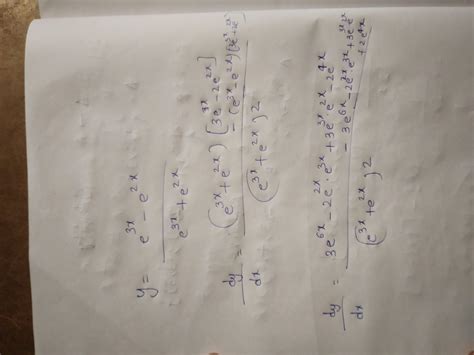 y = e^{3x} - e^{2x}
e^{3x} + e^{2x}
dy = (e^{3x} + e^{2x}) [3e^{3x} - 2e^{2x}]
- (e^{3x} - e^{2x}) (3e^{3x} + 2e^{2x})
dx (e^{3x} + e^{2x})2
dy = 3e^{6x} - 2e^{2x} · e^{3x} + 3e^{3x} · e^{2x} - 2e^{4x}
- 3e^{6x} - 2e^{2x} · e^{3x} + 3e^{3x} e^{2x}
+ 2e^{4x}
dx (e^{3x} + e^{2x})2